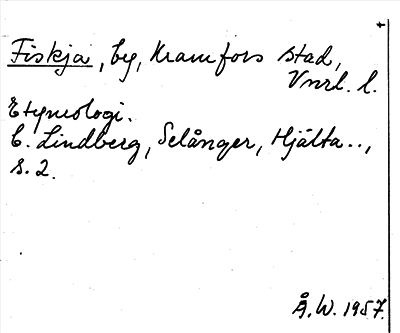 Fiskja, by, Kramfors stad,
Vnrl. l.
Etymologi.
C. Lindberg, Selånger, Hjälta..,
s. 2.
Å. W. 1957.